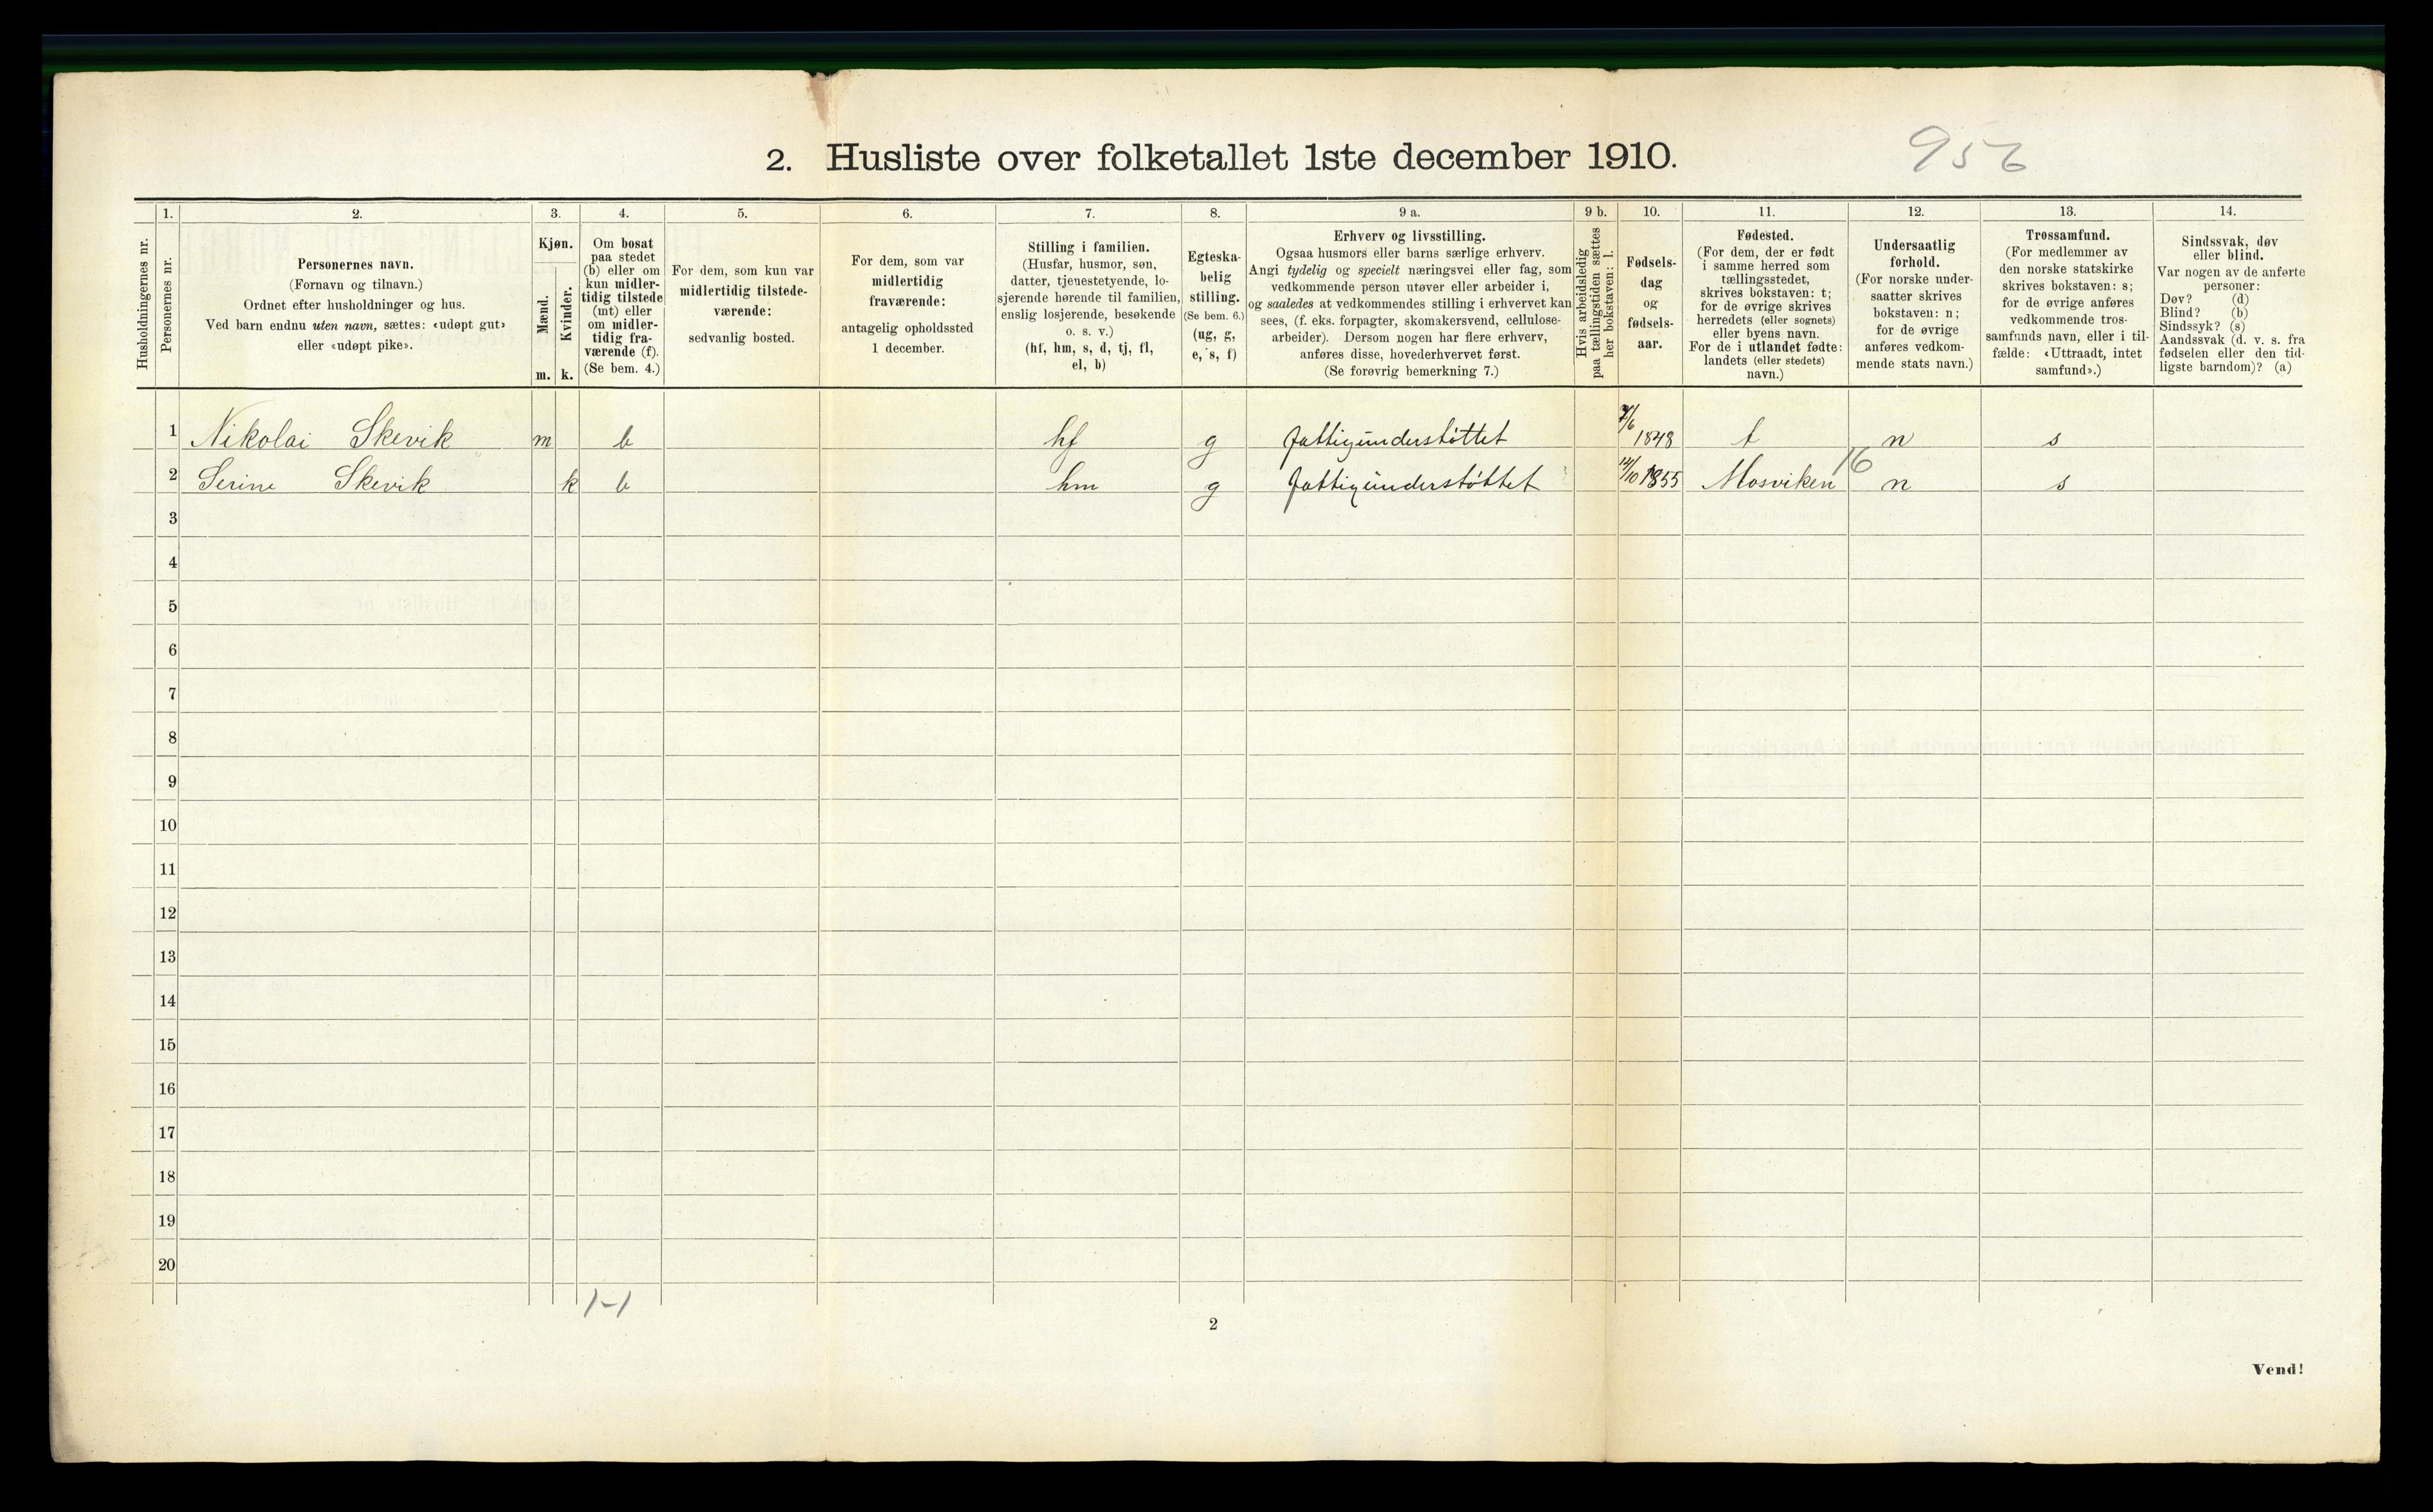 2. Husliste over folketallet 1ste december 1910.
956
Husholdningernes nr.
1.
Personernes nr.
2.
Personernes navn.
(Fornavn og tilnavn.)
Ordnet efter husholdninger og hus.
Ved barn endnu uten navn, sættes: «udøpt gut»
eller «udøpt pike».
3.
Kjøn.
Mænd.
Kvinder.
m. k.
4.
Om bosat
paa stedet
(b) eller om
kun midler-
tidig tilstede
(mt) eller
om midler-
tidig fra-
værende (f).
(Se bem. 4.)
5.
For dem, som kun var
midlertidig tilstede-
værende:
sedvanlig bosted.
6.
For dem, som var
midlertidig
fraværende:
antagelig opholdssted
1 december.
7.
Stilling i familien.
(Husfar, husmor, søn,
datter, tjenestetyende, lo-
sjerende hørende til familien,
enslig losjerende, besøkende
o. s. v.)
(hf, hm, s, d, tj, fl,
el, b)
8.
Egteska-
belig
stilling.
(Se bem. 6.)
(ug, g,
e, s, f)
9 a.
Erhverv og livsstilling.
Ogsaa husmors eller barns særlige erhverv.
Angi tydelig og specielt næringsvei eller fag, som
vedkommende person utøver eller arbeider i,
og saaledes at vedkommendes stilling i erhvervet kan
sees, (f. eks. forpagter, skomakersvend, cellulose-
arbeider). Dersom nogen har flere erhverv,
anføres disse, hovederhvervet først.
(Se forøvrig bemerkning 7.)
9 b.
Hvis arbeidsledig
paa tællingstiden sættes
her bokstaven: l.
10.
Fødsels-
dag
og
fødsels-
aar.
11.
Fødested.
(For dem, der er født
i samme herred som
tællingsstedet,
skrives bokstaven: t;
for de øvrige skrives
herredets (eller sognets)
eller byens navn.
For de i utlandet fødte:
landets (eller stedets)
navn.)
12.
Undersaatlig
forhold.
(For norske under-
saatter skrives
bokstaven: n;
for de øvrige
anføres vedkom-
mende stats navn.)
13.
Trossamfund.
(For medlemmer av
den norske statskirke
skrives bokstaven: s;
for de øvrige anføres
vedkommende tros-
samfunds navn, eller i til-
fælde: «Uttraadt, intet
samfund».)
14.
Sindssvak, døv
eller blind.
Var nogen av de anførte
personer:
Døv? (d)
Blind? (b)
Sindssyk? (s)
Aandssvak (d. v. s. fra
fødselen eller den tid-
ligste barndom)? (a)
1 Nikolai Skevik m b hf g fattigunderstøttet 1848 t n s
2 Serine Skevik k b hm g fattigunderstøttet 14/10 1855 Mosviken 16 n s
3
4
5
6
7
8
9
10
11
12
13
14
15
16
17
18
19
20
1-1
2
Vend!